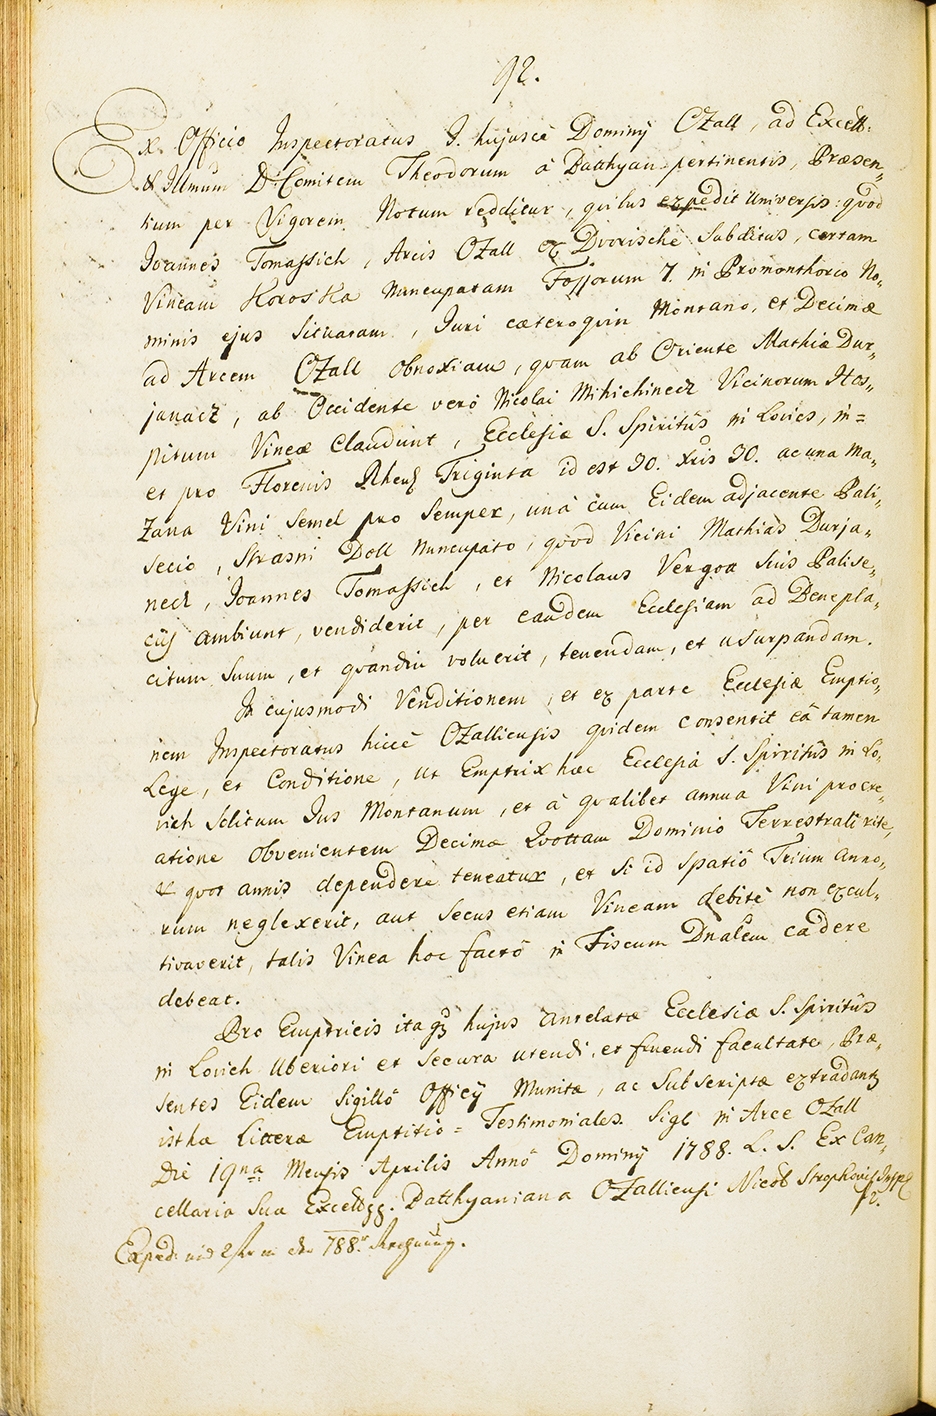 92.
Ex Officio Inspectoratus I. hujusce Dominÿ Ozall, ad Excell:
& Illmum D. Comitem Theodorum à Batthyan pertinentis, Præsen„
tium per Vigorem Notum redditur, quibus expedit Universis: quod
Joannes Tomassich, Arcis Ozall ex Dvorische Subditus, certam
Vineam Koroska nuncupatam Fossorum 7. in Promonthorio No„
minis ejus Situatam, Juri cæteroquin Montano, et Decimæ
ad Arcem Ozall obnoxiam, quam ab Oriente Mathiæ Dur„
janacz, ab Occidente verò Nicolai Mihichinecz Vicinorum Hos„
pitum Vineæ Claudunt, Ecclesiæ S. Spiritûs in Lovics, in=
et pro Florenis Rhen Triginta id est 30. Xris 30. ac una Ma„
zana Vini Semel pro Semper, unà cum Eidem adjacente Pali„
secio, Strasni Doll Nuncupato, quod Vicini Mathias Durja„
necz, Joannes Tomassich, et Nicolaus Vergoa Suis Palise„
cijs ambiunt, vendiderit, per eandem Ecclesiam ad Benepla„
citum Suum, et quandiu voluerit, tenendam, et usurpandam.
In cujusmodi Venditionem, et ex parte Ecclesiæ Emptio„
nem Inspectoratus hicce Ozalliensis quidem consentit eâ tamen
Lege, et Conditione, ut Emptrix hæc Ecclesia S. Spiritûs in Lo„
vich Solitum Jus Montanum, et à qualibet annua Vini procre„
atione obvenientem Decimæ Quottam Dominio Terrestrali rite,
& quot annis dependere teneatur, et Si id Spatiô Trium Anno„
rum neglexerit, aut Secus etiam Vineam debitè non excul„
tivaverit, talis Vinea hoc factô in Fiscum Dnalem cadere
debeat.
Pro Emptricis itaq hujus Antelatæ Ecclesiæ S. Spiritûs
in Lovich Uberiori et Secura utendi, et fruendi facultate, Præ„
sentes Eidem Sigillô Officÿ Munitæ, ac Subscriptæ extradant
isthæ Litteræ Emptitio = Testimoniales. Sigl in Arce Ozall
Die 19na Mensis Aprilis Annô Dominÿ 1788. L. S. Ex Can„
cellaria Sua Batthyaniana Ozalliensi Strophovich
Exped: in 788. Rechnung.